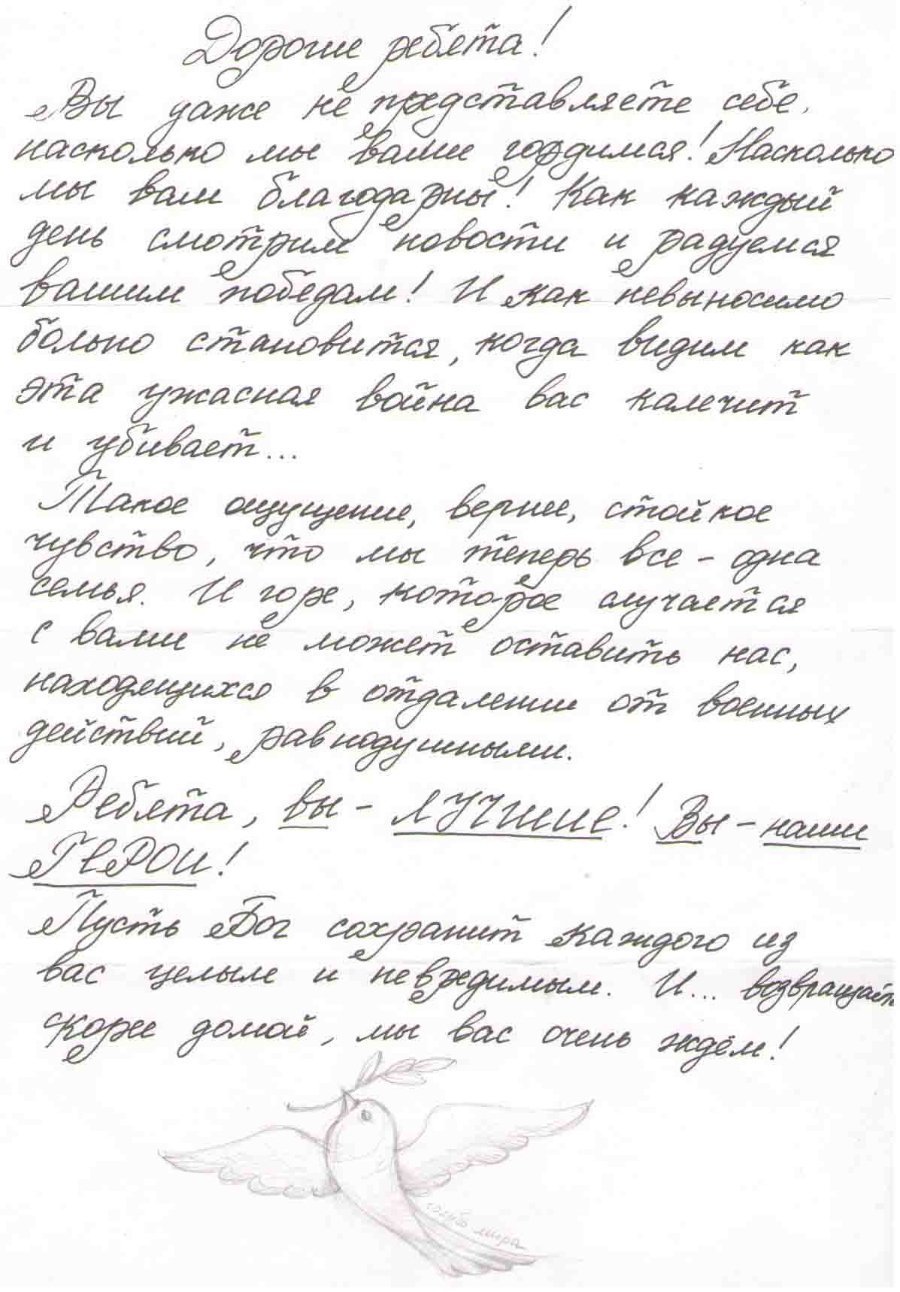 Дорогие ребята!
Вы даже не представляете себе,
насколько мы вами гордимся! Насколько
мы вам благодарны! Как каждый
день смотрим новости и радуемся
вашим победам! И как невыносимо
больно становится, когда видим как
эта ужасная война вас калечит
и убивает...
Такое ощущение, вернее, стойкое
чувство, что мы теперь все - одна
семья. И горе, которое случается
с вами не может оставить нас,
находящихся в отдалении от военных
действий, равнодушными.
Ребята, вы - ЛУЧШИЕ! Вы - наши
ГЕРОИ!
Пусть Бог сохранит каждого из
вас целым и невредимым. И... возвращайт
скорее домой, мы вас очень ждём!
голубь мира